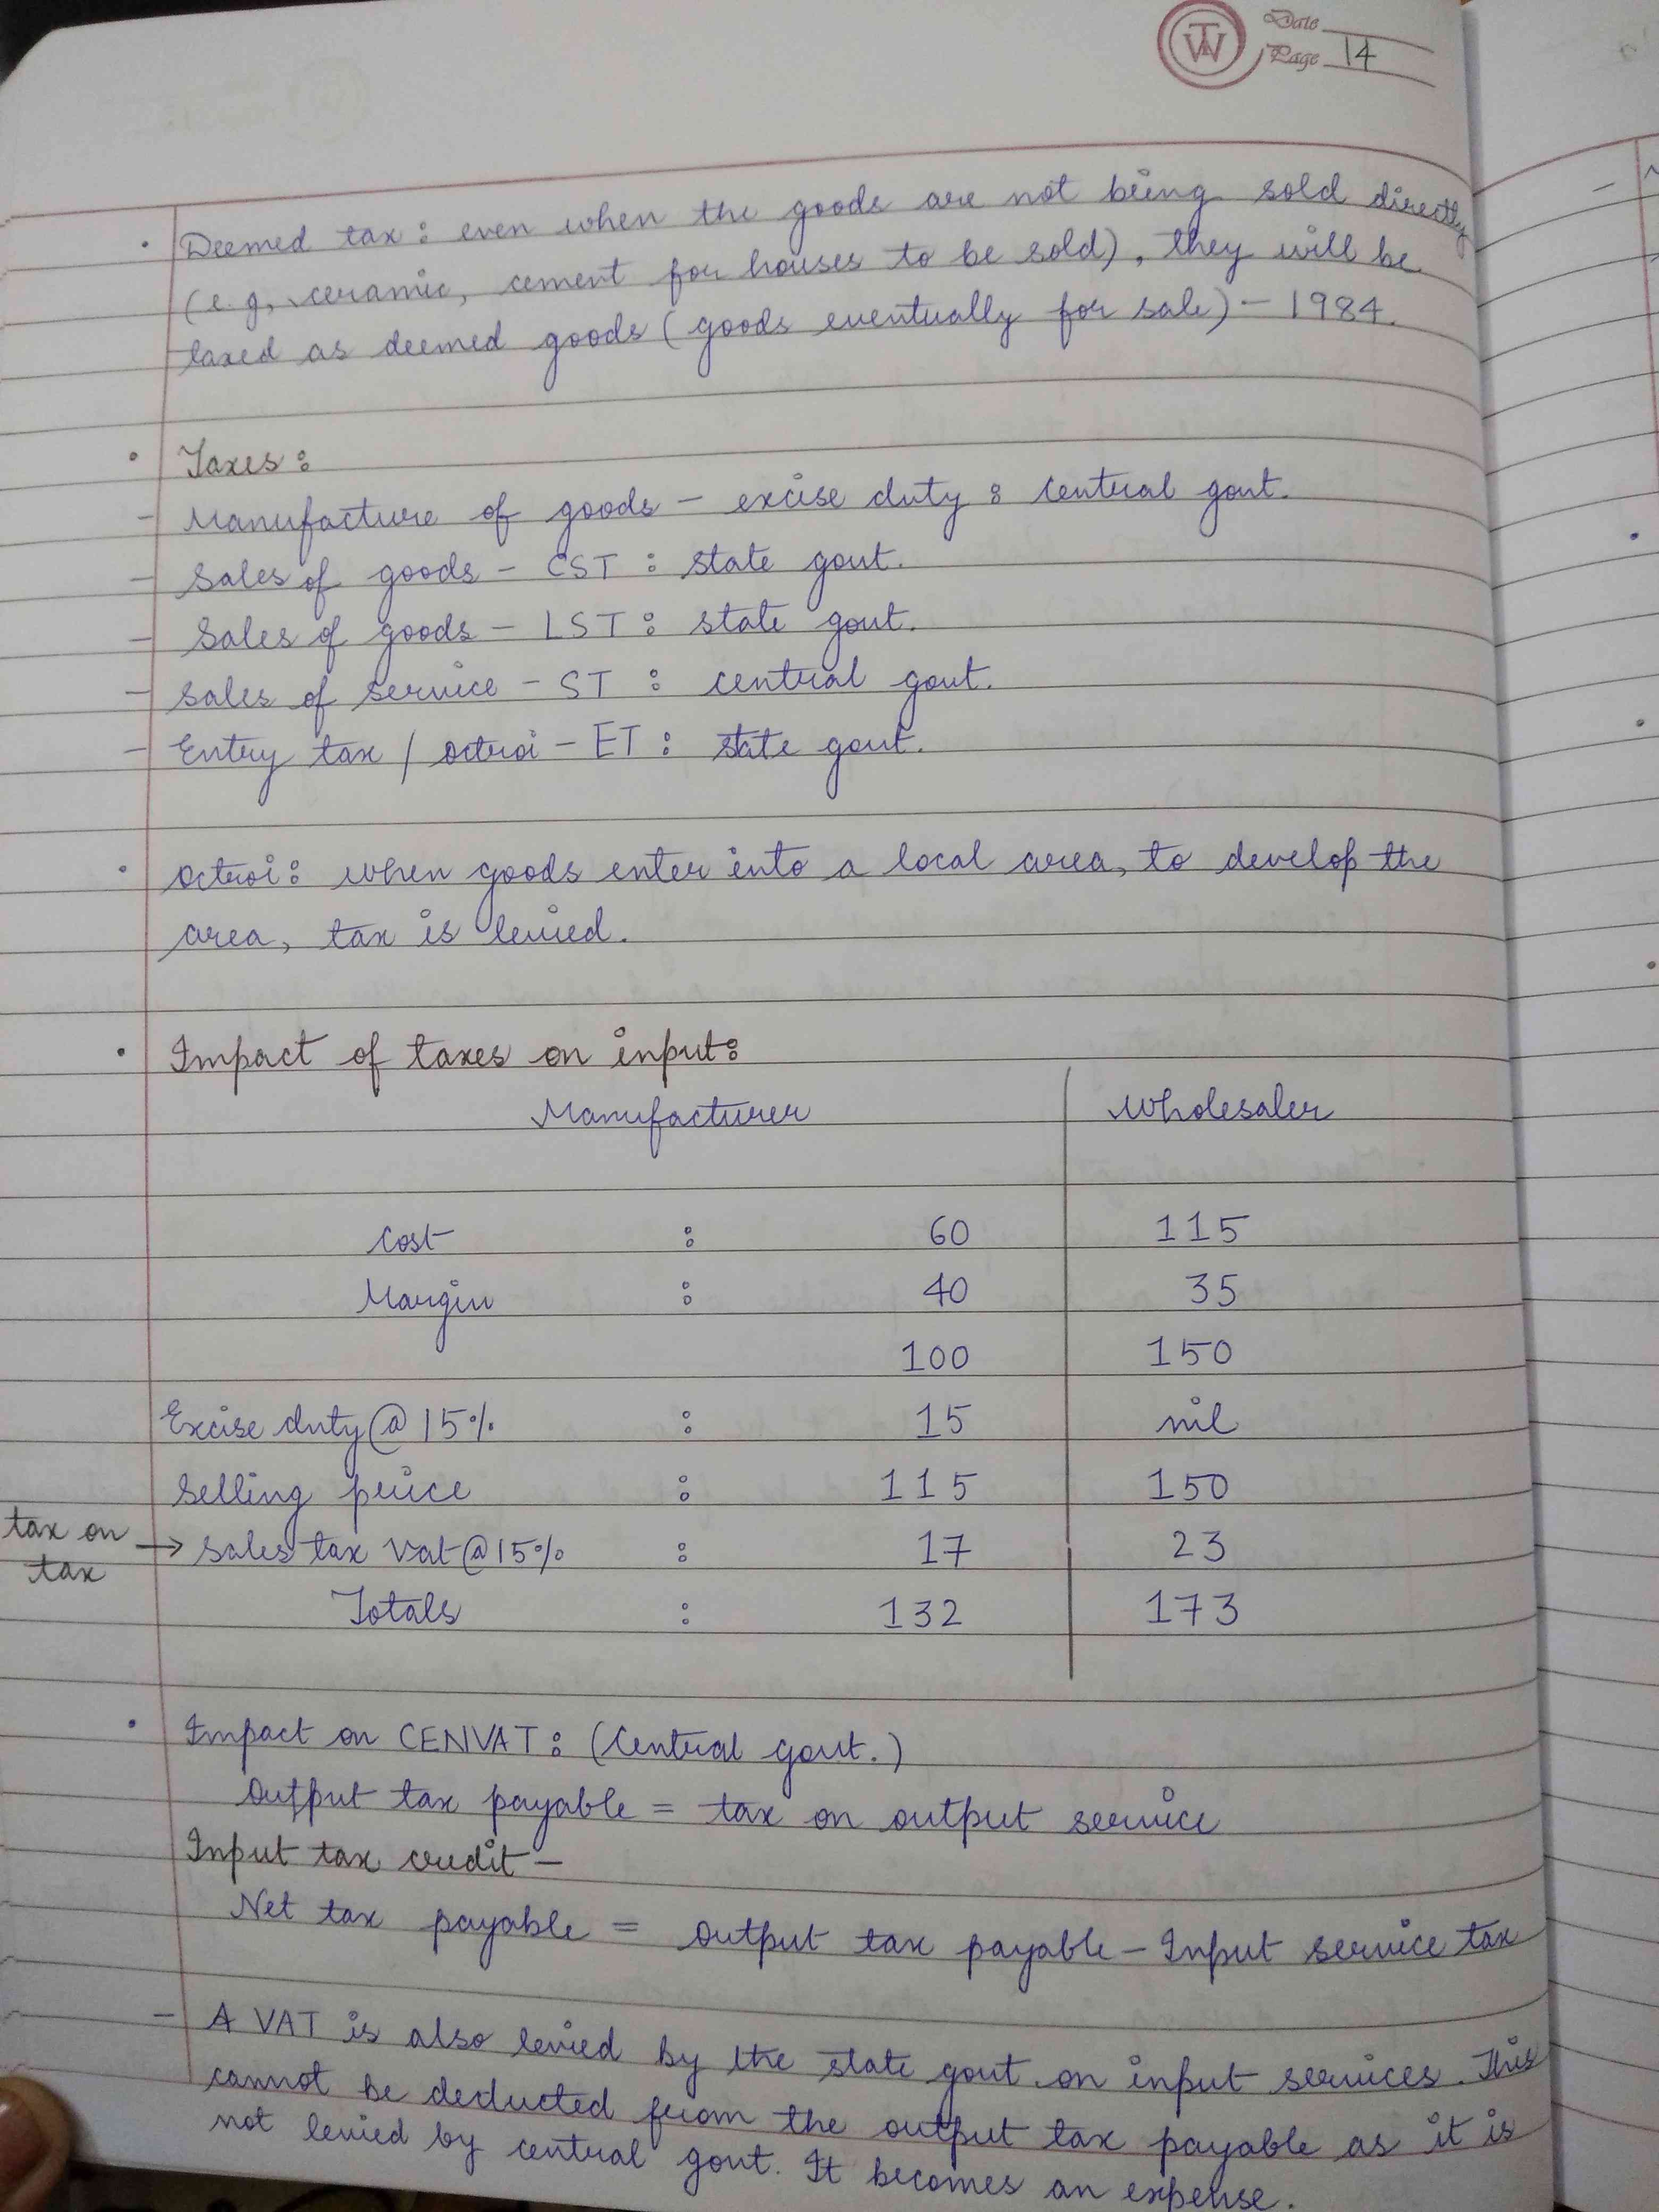 TW
Date
Page 14
• Deemed tax: even when the goods are not being sold directly
(e.g, ceramic, cement for houses to be sold), they will be
taxed as deemed goods (goods eventually for sale) - 1984.
• Taxes:
- Manufacture of goods - excise duty: central govt.
- Sales of goods - CST: state govt.
- Sales of goods - LST: state govt.
- Sales of service - ST: central govt.
- Entry tax / octroi - ET: state govt.
• Octroi: when goods enter into a local area, to develop the
area, tax is levied.
• Impact of taxes on input:
Manufacturer Wholesaler
Cost : 60 115
Margin : 40 35
100 150
Excise duty @ 15% : 15 nil
Selling price : 115 150
tax on tax → Sales tax vat @ 15% : 17 23
Totals : 132 173
• Impact on CENVAT: (Central govt.)
Output tax payable = tax on output service
Input tax credit -
Net tax payable = output tax payable - Input service tax
- A VAT is also levied by the state govt. on input services. This
cannot be deducted from the output tax payable as it is
not levied by central govt. It becomes an expense.